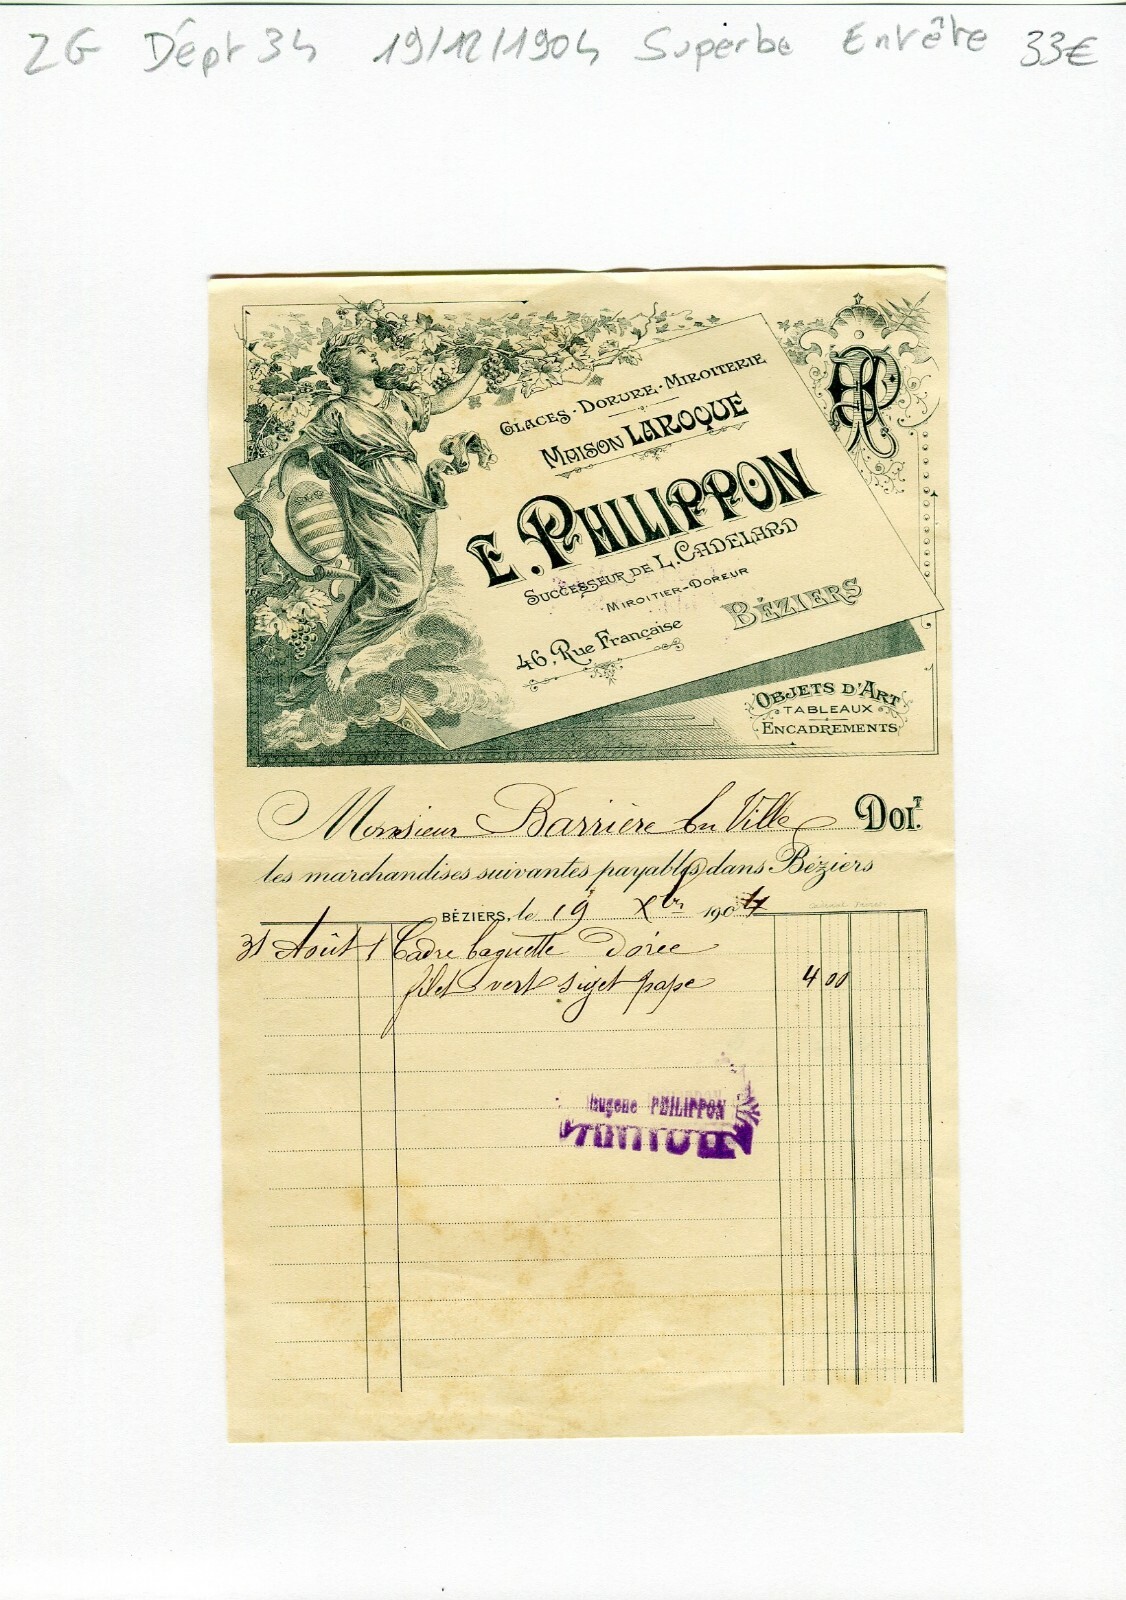 ZG Dépt 34 19/12/1904 Superbe Entête 33€
GLACES - DORURE - MIROITERIE
MAISON LAROQUE
E. PHILIPPON
SUCCESSEUR DE L. CADELARD
MIROITIER-DOREUR
46, Rue Française BÉZIERS
OBJETS D'ART
TABLEAUX
ENCADREMENTS
Monsieur Barrière En Ville DOIT.
les marchandises suivantes payables dans Béziers
BÉZIERS, le 19 Xbre 1904
31 Août 1 Cadre baguette Dorée
filet vert sujet pape 4 00
Eugène PHILIPPON